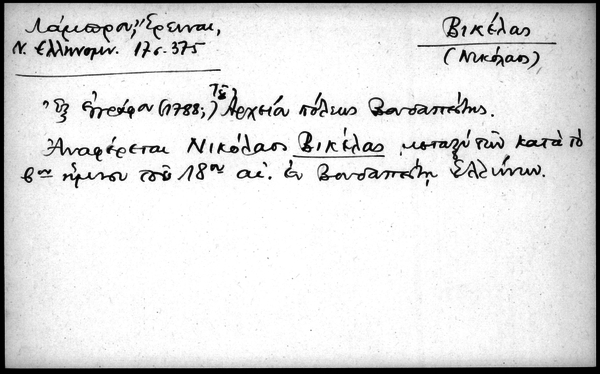 Λάμπρου, Ἔρευναι,
Ν. Ἑλληνομν. 17ος. 375
Βικέλας
(Νικόλαος)
Ἐξ ἐγγράφου (1788;) τῶν Ἀρχείων πόλεως Βουδαπέστης.
Ἀναφέρεται Νικόλαος Βικέλας μεταξὺ τῶν κατὰ τὸ
βον ἥμισυ τοῦ 18ου αἰ. ἐν Βουδαπέστῃ Ἑλλήνων.